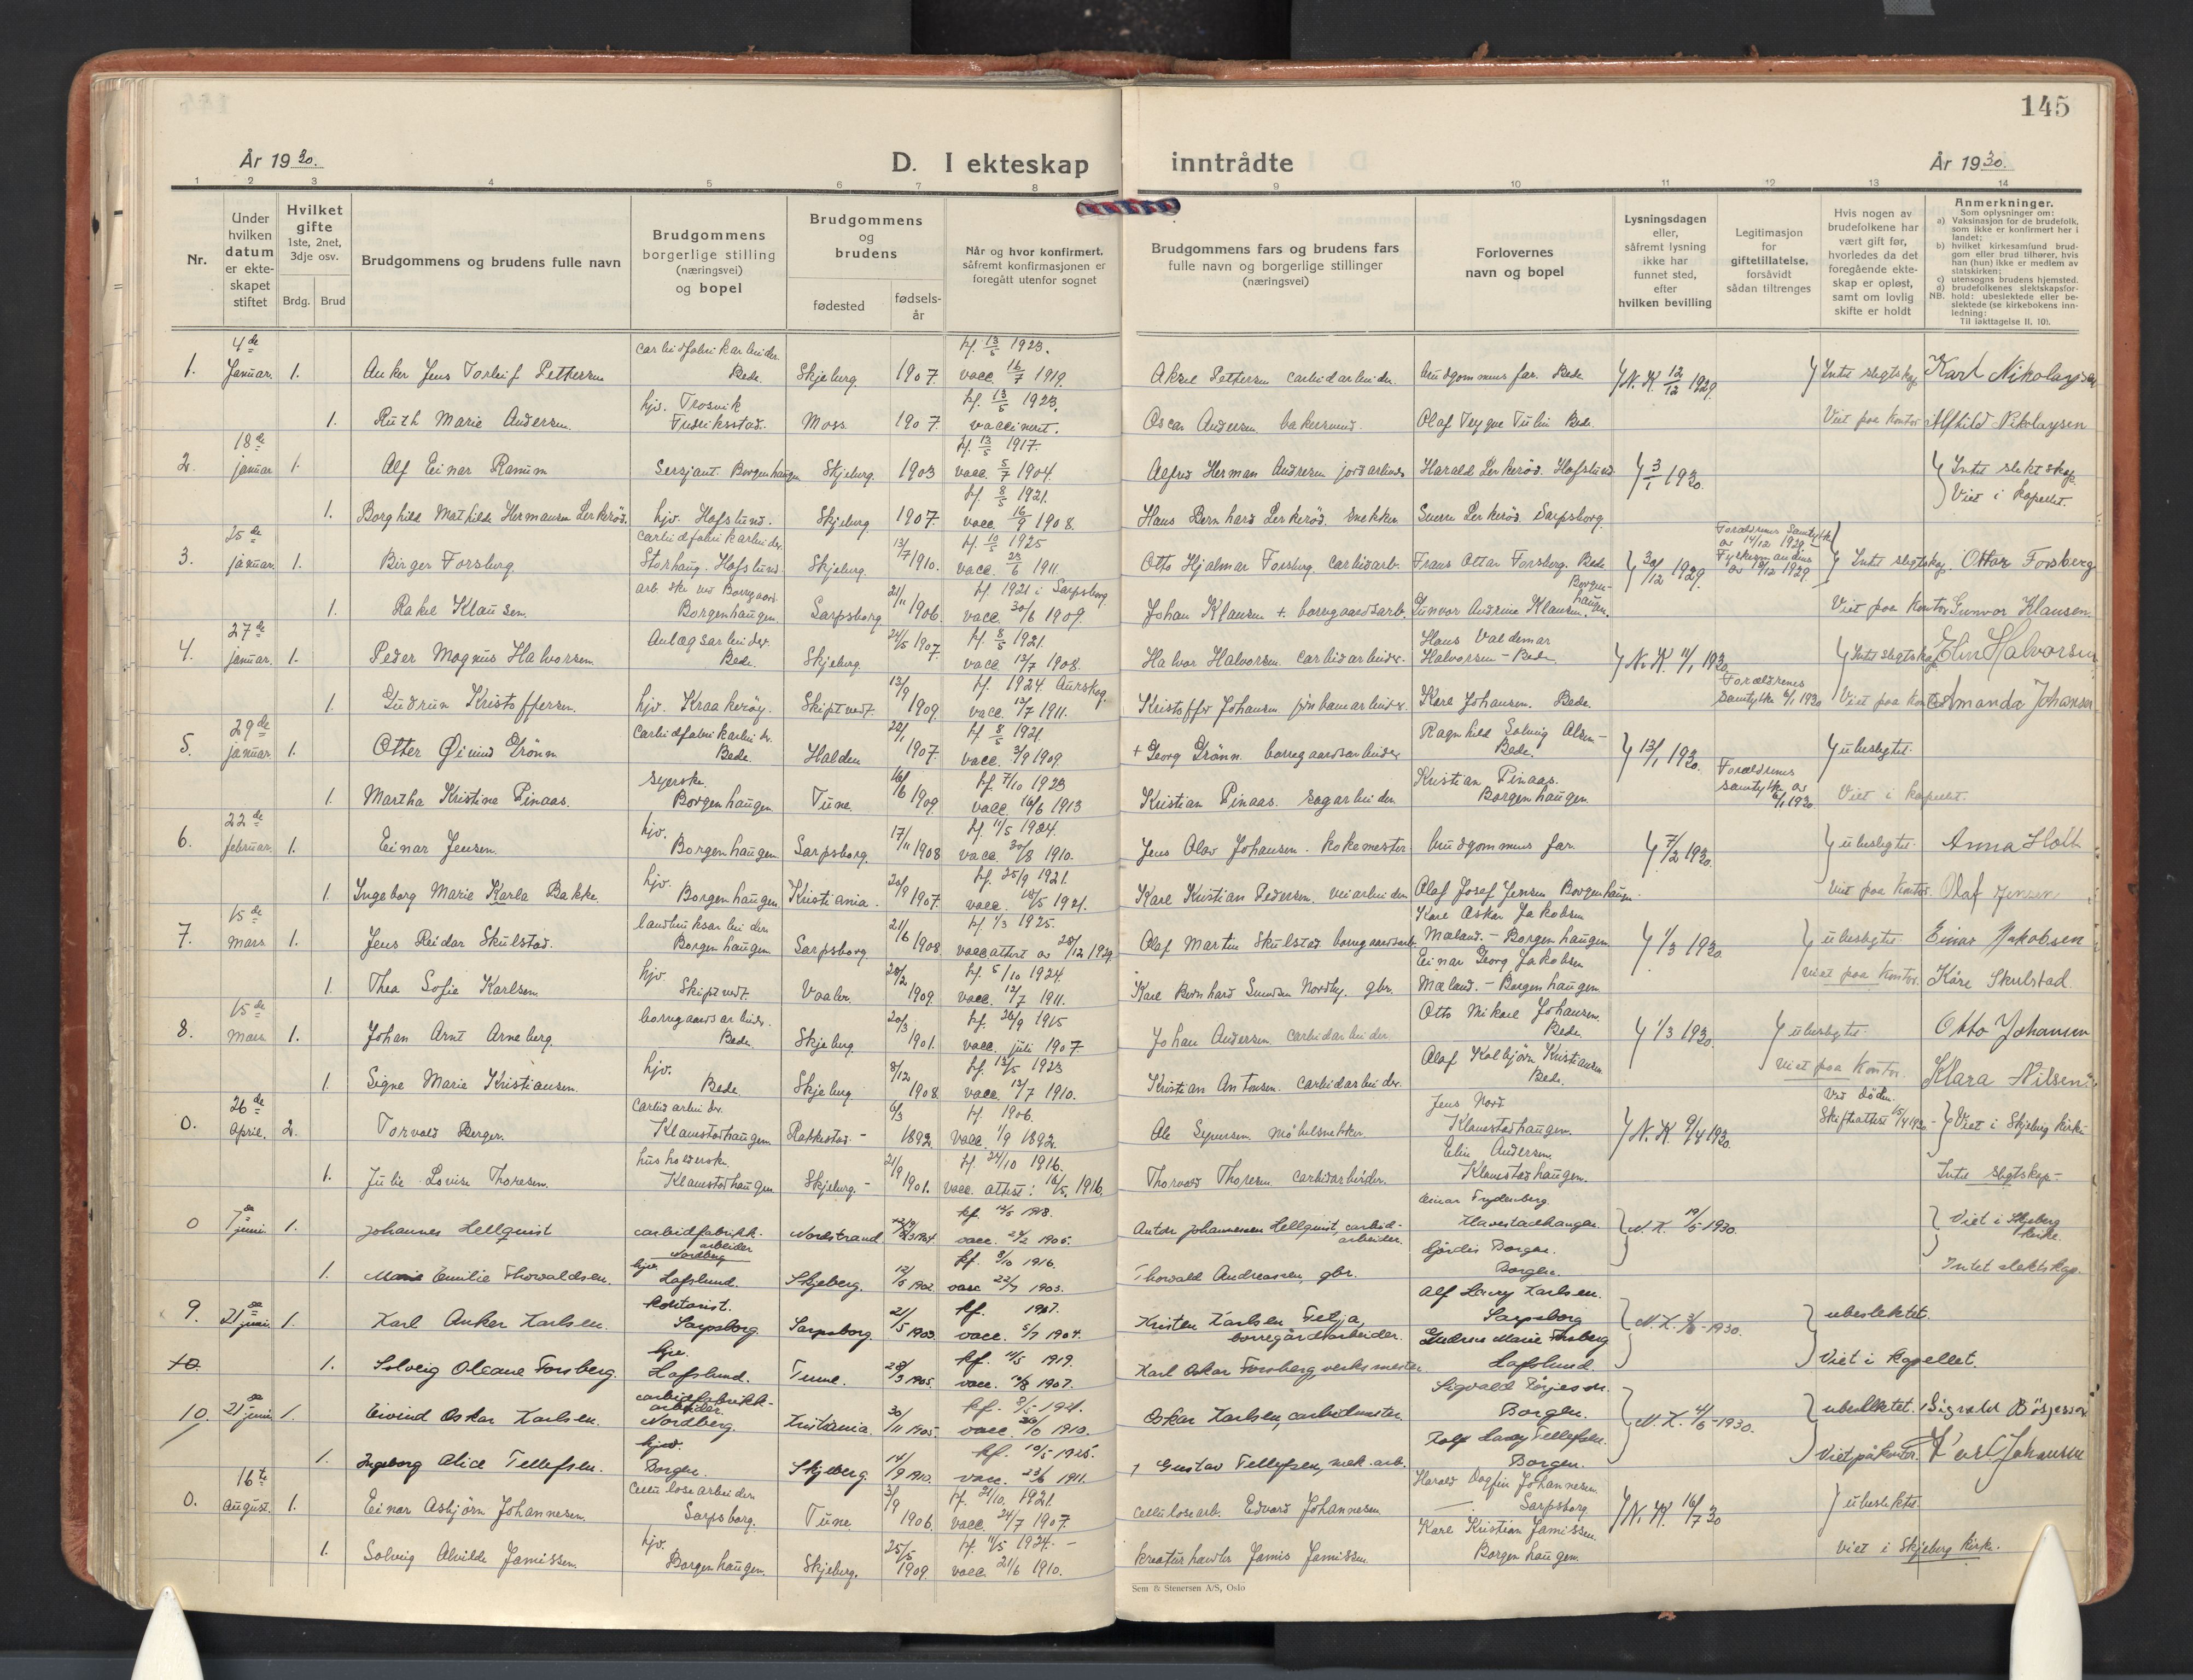 145
År 1930.
D. I ekteskap inntrådte
År 1930.
1 2 3 4 5 6 7 8 9 10 11 12 13 14
Nr.
Under hvilken datum er ekte-skapet stiftet
Hvilket gifte 1ste, 2net, 3dje osv.
Brdg. Brud
Brudgommens og brudens fulle navn
Brudgommens borgerlige stilling (næringsvei) og bopel
Brudgommens og brudens
fødested
fødsels-år
Når og hvor konfirmert, såfremt konfirmasjonen er foregått utenfor sognet
Brudgommens fars og brudens fars fulle navn og borgerlige stillinger (næringsvei)
Forlovernes navn og bopel
Lysningsdagen eller, såfremt lysning ikke har funnet sted, efter hvilken bevilling
Legitimasjon for giftetillatelse, forsåvidt sådan tiltrenges
Hvis nogen av brudefolkene har vært gift før, hvorledes da det foregående ekte-skap er opløst, samt om lovlig skifte er holdt
Anmerkninger.
Som oplysninger om:
a) Vaksinasjon for de brudefolk, som ikke er konfirmert her i landet;
b) hvilket kirkesamfund brud-gom eller brud tilhører, hvis han (hun) ikke er medlem av statskirken;
c) utensogns brudens hjemsted.
d) brudefolkenes slektskapsfor-hold: ubeslektede eller be-slektede (se kirkebokens inn-ledning:
NB. Til iakttagelse II. 10).
1. 4de Januar. 1. Anker Jens Torleif Pettersen carbidfabrikarbeider Bede. Skjeberg 1907. kf. 13/5 1923. vacc. 16/7 1919. Aksel Pettersen carbidarbeider. brudgommens far. Bede N. K. 12/12 1929. Intet slegtskap Karl Nikolaysen
1. Ruth Marie Andersen. hjv. Trosvik Fredriksstad. Moss 1907. kf. 13/5 1923. vaccineret. Oscar Andersen bakersvend. Olaf Trygve Tulin Bede. Viet paa kontor Alfhild Nikolaysen
2. 18de januar 1. Alf Einar Ranum Sersjant. Borgenhaugen Skjeberg. 1903 kf. 13/5 1917. vacc. 5/7 1904. Alfred Herman Andresen jordarbeider Harald Lerkerød. Hafslund 3/1 1930. Intet slektskap.
1. Borghild Mathilde Hermansen Lerkerød. hjv. Hafslund. Skjeberg 1907. kf. 8/5 1921. vacc. 16/9 1908. Hans Bernhard Lerkerød. snekker Sverre Lerkerød. Sarpsborg. Viet i kapellet.
3. 25de januar. 1. Birger Forsberg carbidfabrikarbeider. Storhaug. Hafslund. Skjeberg. 13/7 1910. kf. 10/5 1925 vacc. 23/6 1911. Otto Hjalmar Forsberg. carbidarb. Frans Ottar Forsberg. Bede 30/12 1929. Forældrenes samtykke av 14/12 1929 Fylkesmandens av 18/12 1929 Intet slegtskap. Ottar Forsberg
1. Rakel Klausen. arb.ske ved Borregaard. Borgenhaugen. Sarpsborg 21/11 1906. kf. 1921 i Sarpsborg vacc. 30/6 1909. Johan Klausen + borregaardsarb. Gunvor Andrine Klausen Borgenhaugen. Viet paa kontor Gunvor Klausen.
4. 27de januar. 1. Peder Magnus Halvorsen. Anlægsarbeider. Bede. Skjeberg 24/5 1907. kf. 8/5 1921. vacc. 13/7 1908. Halvor Halvorsen. carbidarbeider. Hans Valdemar Halvorsen - Bede N. K. 11/1 1930. Intet slegtskap. Elin Halvorsen
1. Gudrun Kristoffersen. hjv. Kraakerøy. Skiptvedt. 13/9 1909. kf. 1924. Aurskog. vacc. 13/7 1911. Kristoffer Johansen jernbanearbeider. Karl Johansen. Bede. Forældrenes samtykke 6/1 1930 Viet paa kontor Amanda Johansen
5. 29de januar 1. Otter Øivind Grønn Carbidfabrikarbeider. Bede. Halden 22/1 1907. kf. 8/5 1921. vacc. 3/9 1909. + Georg Grønn. borregaardsarbeider Ragnhild Solveig Olsen - Bede. 13/1 1930. ubeslegtet.
1. Martha Kristine Pinaas. syerske. Borgenhaugen Tune. 16/6 1909. kf. 7/10 1923 vacc. 16/6 1913 Kristian Pinaas. sagarbeider. Kristian Pinaas. Borgenhaugen. Forældrenes samtykke av 6/1 1930 Viet i kapellet.
6. 22de februar. 1. Einar Jensen. hjv. Borgenhaugen. Sarpsborg. 17/11 1908 kf. 11/5 1924. vacc. 30/8 1910. Jens Olav Johansen. kokemester brudgommens far 7/2 1930. ubeslegtet. Anna Holth
1. Ingeborg Marie Karla Bakke. hjv. Borgenhaugen Kristiania. 20/9 1907. kf. 25/9 1921. vacc. 18/5 1921. Karl Kristian Pedersen. veiarbeider Olaf Josef Jensen Borgenhaugen. Viet paa kontor. Olaf Jensen
7. 15de mars 1. Jens Reidar Skulstad. landbruksarbeider. Borgenhaugen Sarpsborg 21/6 1908. kf. 1/3 1925. vacc attest av 28/12 1929 Olaf Martin Skulstad borregaardsarb. Karl Oskar Jakobsen Mæland. - Borgenhaugen 1/3 1930. ubeslegtet. Einar Jakobsen
1. Thea Sofie Karlsen. hjv. Skiptvedt. Vaaler. 20/2 1909. kf. 5/10 1924. vacc. 13/7 1911. Karl Bernhard Svendsen Nordby. gbr. Einar Georg Jakobsen Mæland. - Borgenhaugen. viet paa kontor. Kåre Skulstad.
8. 15de mars 1. Johan Arnt Arneberg. borregaardsarbeider. Bede. Skjeberg 20/3 1901. kf. 26/9 1915 vacc. juli 1907. Johan Andersen. carbidarbeider. Otto Mikael Johansen. Bede. 1/3 1930. ubeslegtet. Otto Johansen
1. Signe Marie Kristiansen. hjv. Bede Skjeberg 8/12 1908. kf. 13/5 1923 vacc. 13/7 1910. Kristian Antonsen. carbidarbeider. Olaf Kolbjørn Kristiansen Bede. viet paa kontor. Klara Nilsen
0. 26de April. 2. Torvald Berger. carbidarbeider. Klavestadhaugen Rakkestad. - 6/3 1892. kf. 1906. vacc. 1/9 1892. Ole Syversen møbelsnekker. Jens Nord Klavestadhaugen. N. K. 9/4 1930. Ved døden. Skifteattest 15/4 1930 - Viet i Skjeberg kirke
1. Julie Lovise Thoresen. husholderske Klavestadhaugen Skjeberg. - 21/9 1901. kf. 24/10 1916. vacc. attest: 16/5 1916. Thorvald Thoresen. carbidarbeider. Elin Andersen. Klavestadhaugen. Intet slegtskap -
0 7de juni 1. Johannes Hellquist carbidfabrikk-arbeider Nordberg Nordstrand 1904. kf. 12/5 1918. vacc. 24/2 1905. Anton Johannessen Hellquist, carbid-arbeider. Einar Frydenberg. Klavestadhaugen. N. K. 19/5 1930. Viet i Skjeberg kirke.
1. Marie Emilie Thorvaldsen. hjv. Hafslund. Skjeberg. 12/6 1902. kf. 8/10 1916. vacc 22/7 1903. Thorvald Andreassen, gbr. Hjørdis Borgen. Borgen. Intet slektskap.
9. 21de juni 1. Karl Anker Karlsen. kontorist. Sarpsborg. Sarpsborg. 21/5 1903. kf. 1917. vacc. 5/7 1904. Kristen Karlsen Felja, borregårdsarbeider. Alf Harry Karlsen. Sarpsborg N. K. 3/6 - 1930. ubeslektet.
10. 1. Solveig Oleane Forsberg. hjv. Hafslund. Tune. 28/3 1905. kf. 11/5 1919. vacc. 10/8 1907. Karl Oskar Forsberg, verksmester Gudrun Marie Forsberg Hafslund. Viet i kapellet.
10. 21de juni 1. Eivind Oskar Karlsen. carbidfabrikk-arbeider. Nordberg. Kristiania. 30/11 1905. kf. 8/5 - 1921. vacc. 1910. Oskar Karlsen, carbidmester Sigvald Børjeson. Borgen. N. K. 4/6 - 1930. ubeslektet. Sigvald Börjesson
1. Ingeborg Alice Tellefsen. hjv. Borgen. Skjeberg. 14/9 1910. kf. 10/5 1925. vacc. 23/6 1911. Gustav Tellefsen, mek. arb. Rolf Harry Tellefsen. Borgen. Viet på kontor. Johansen
0. 16te August. 1. Einar Asbjørn Johannesen. cellulosearbeider Sarpsborg. Tune. 3/9 1906. kf. 21/10. 1921. vacc. 24/7 1907. cellulosearb. Edvard Johannesen Harald Dagfin Johannesen. Sarpsborg N. K. 16/7 30 ubeslektet.
1. Solveig Alvilde Jamissen. hjv. Borgenhaugen. Skjeberg. 25/5 1909. kf. 11/5 1924. - vacc. 21/6 1910. kreaturhandler Jamis Jamissen. Karl Kristian Jamissen. Borgenhaugen. Viet i Skjeberg kirke.
Sem & Stenersen A/S, Oslo